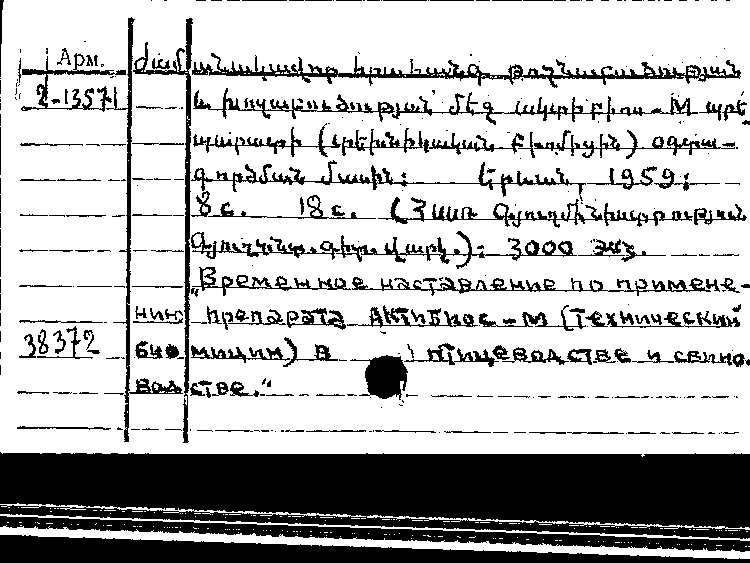 Арм. Ժամանակավոր հրահանգ թռչնաբուծության
2-13571 և խոզաբուծության մեջ ակտիբիոս-М պրե
պարատի (տեխնիկական բիոմիցին) օգտա-
գործման մասին: Երևան, 1959:
8 с. 18 с. (ՀՍՍՌ Գյուղմինիստրություն
Գյուղատնտ. գիտ. վարչ.): 3000 экз.
„Временное наставление по примене-
нию препарата Актибиос-М (технический
38372 биомицин) в птицеводстве и свино.
водстве.“